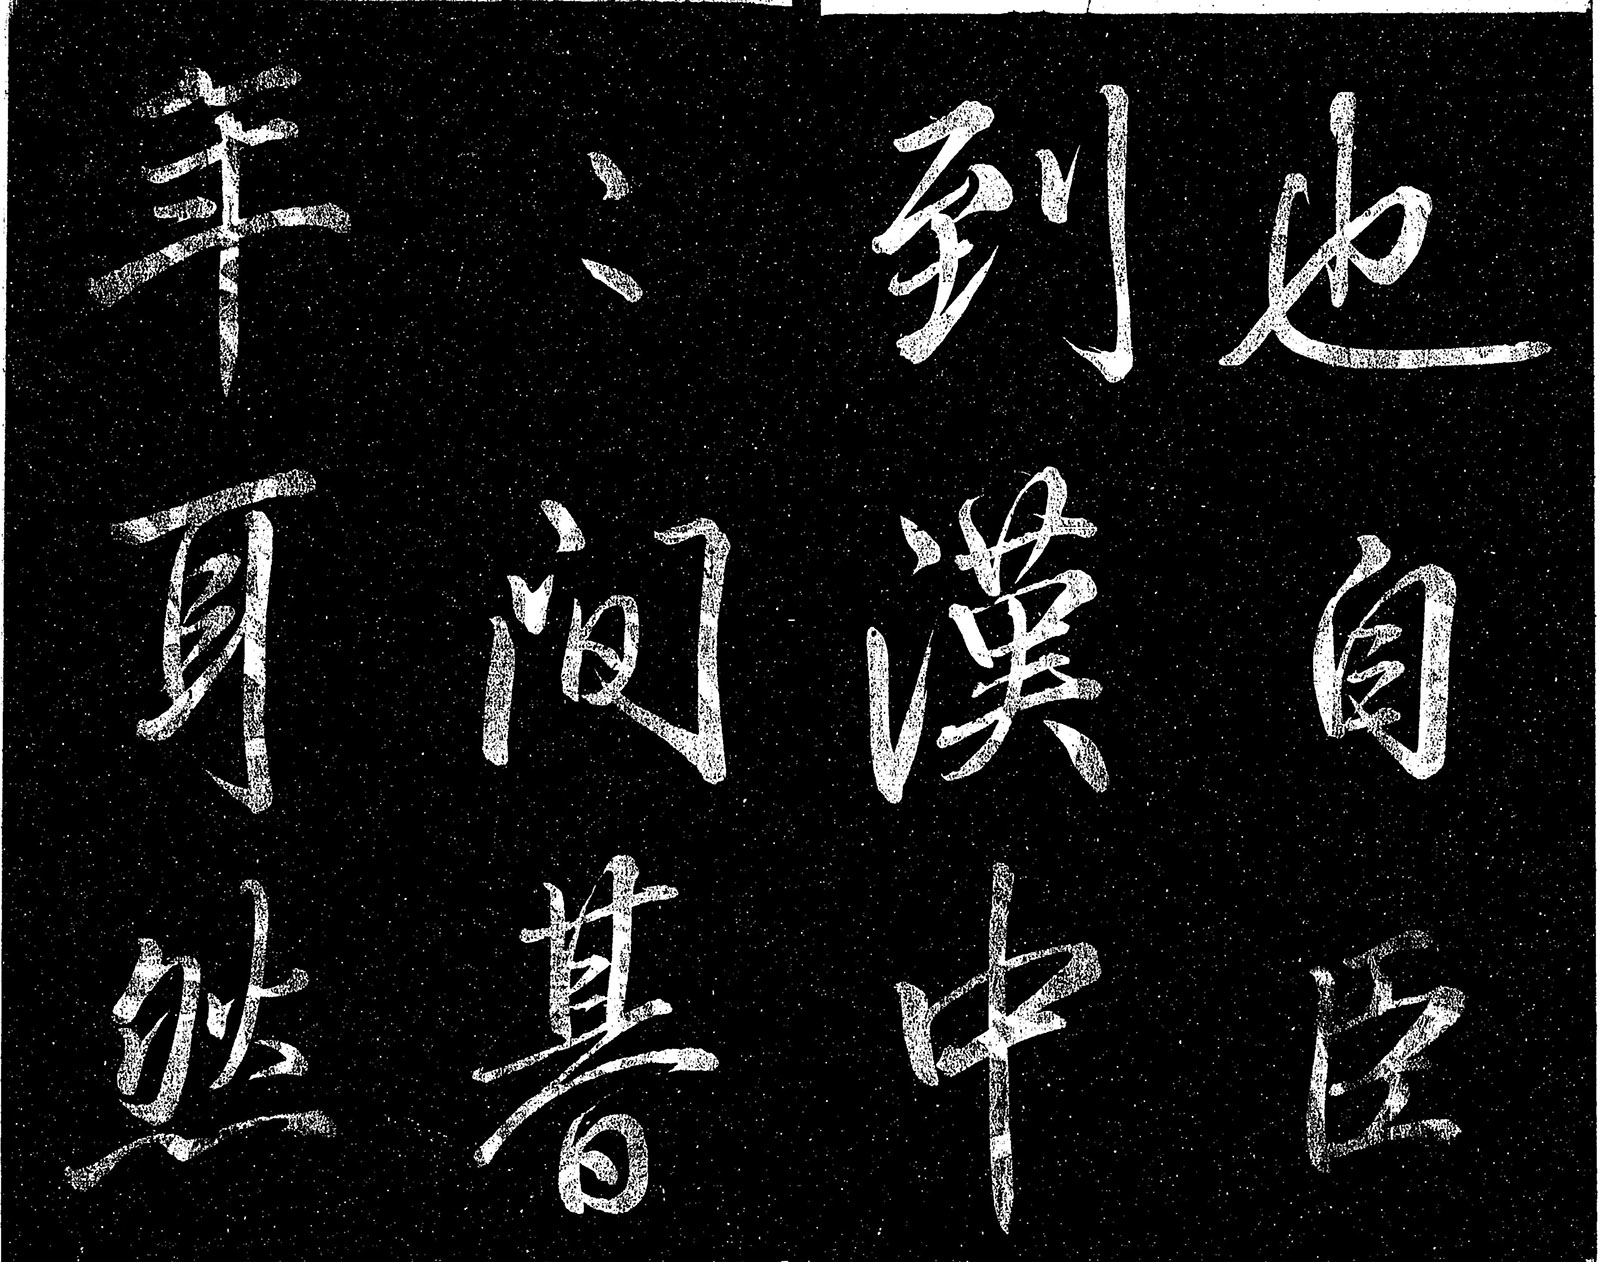 也自臣
到漢中
〻間朞
年耳然